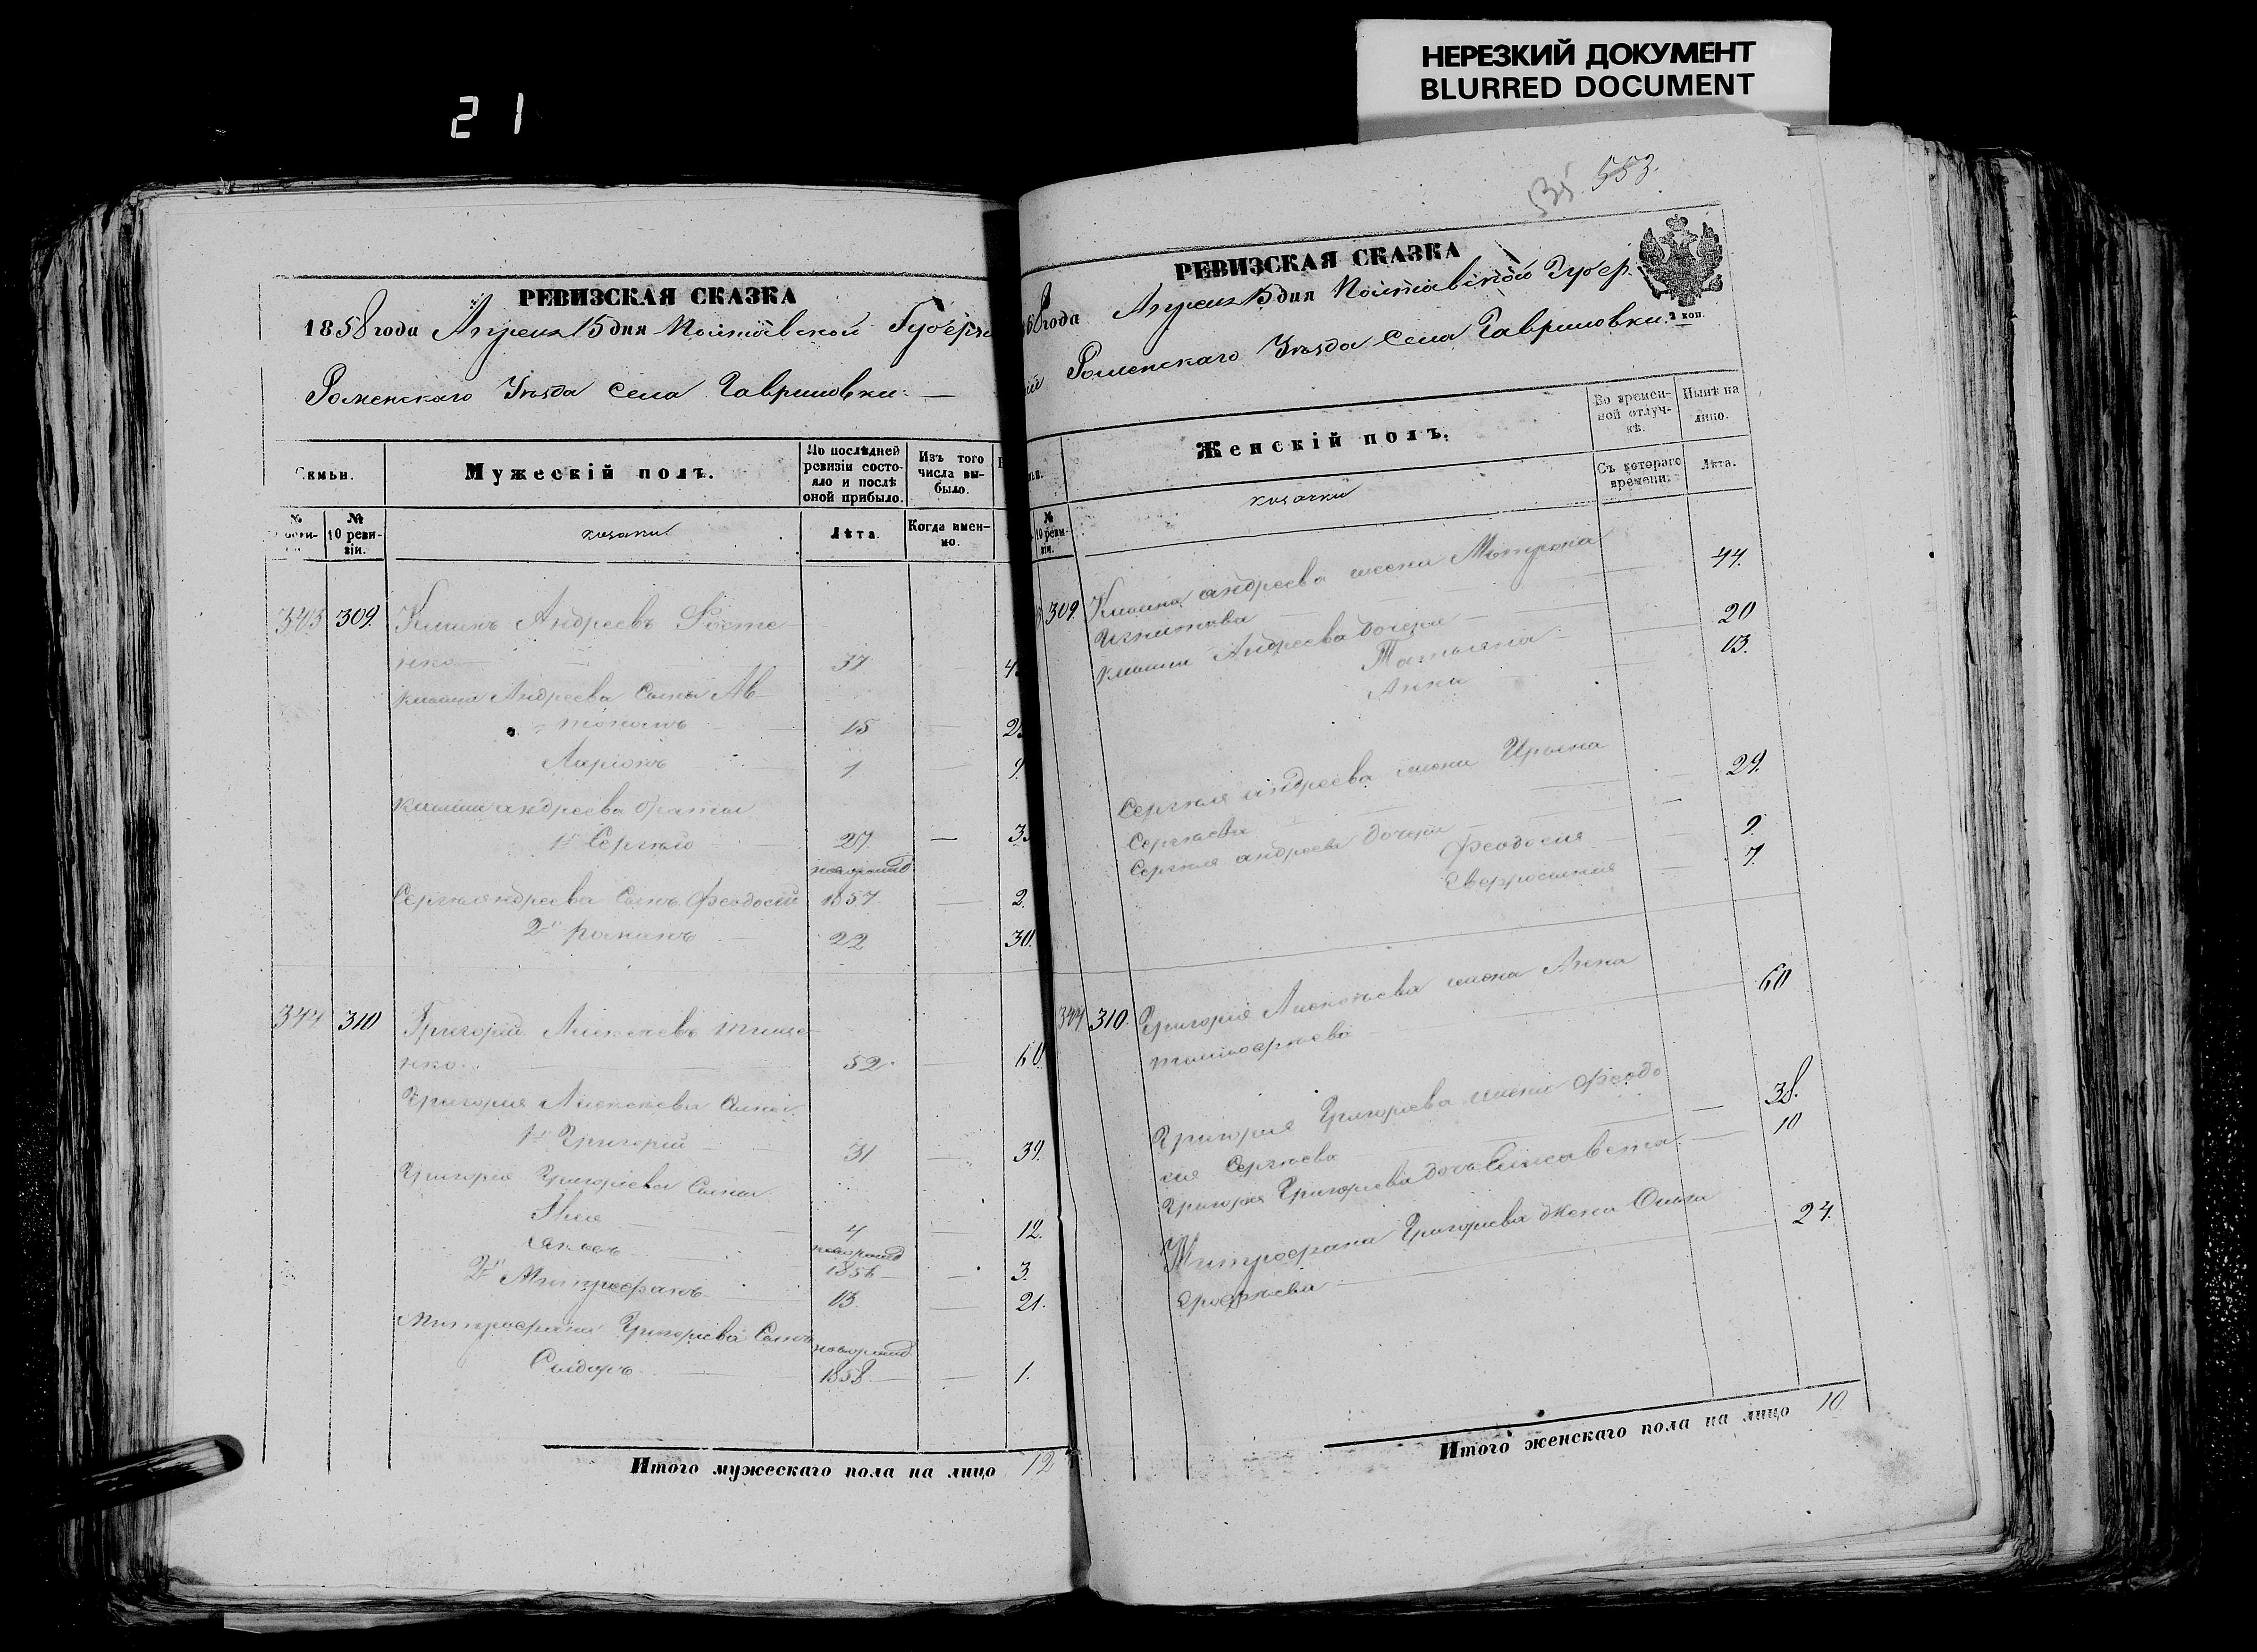 21
НЕРЕЗКИЙ ДОКУМЕНТ
BLURRED DOCUMENT
РЕВИЗСКАЯ СКАЗКА
1858 года Апреля 15 дня Полтавской Губерн
Роменскаго Уезда Села Гавриловки.
Семьи.
Мужескій полъ.
По послѣдней ревизіи состояло и послѣ оной прибыло.
Изъ того числа выбыло.
№ 10 ревизіи.
козаки
Лѣта.
Когда именно.
343 309. Климъ Андреевъ Косте
нко 37
Клима Андреева Сыны Ав
тономъ 15
Ларіонъ 1 9
Клима Андреева братья
1й Сергѣй 27
новорожд
Сергѣя Андреева Сынъ Феодосій 1857 2
2й Романъ 22 30.
344 310 Григорій Алексѣевъ Тище
нко 52. 60
Григорія Алексѣева Сыны
1й Григорій 31 39.
Григорія Григоріева Сыны
Илія 4 12.
новорожд
Яковъ 1856 3.
2й Митрофанъ 13 21.
Митрофана Григоріева Сынъ новорожд
Сидоръ 1858 1.
Итого мужескаго пола на лицо 12
553.
РЕВИЗСКАЯ СКАЗКА
8 года Апреля 15 дня Полтавской Губер
2 коп.
ній Роменскаго Уѣзда Села Гавриловки.
Женскій полъ.
Во временной отлучкѣ.
Нынѣ на лицо.
№ 10 ревизіи.
козачки
Съ котораго времени.
Лѣта.
309. Клима Андреева жена Матрона
Игнатова 44.
Клима Андреева дочери
Татьяна 20
Анна 13.
Сергѣя Андреева жена Ирина
Сергѣева 29.
Сергѣя Андреева дочери
Феодосия 9.
Евфросиния 7.
344 310. Григорія Алексѣева жена Анна
Тимофѣева 60
Григорія Григоріева жена Феодо
сия Сергѣева 38.
Григорія Григоріева дочь Елисавета 10
Митрофана Григоріева жена Ольга
Ерофѣева 24.
Итого женскаго пола на лицо 10